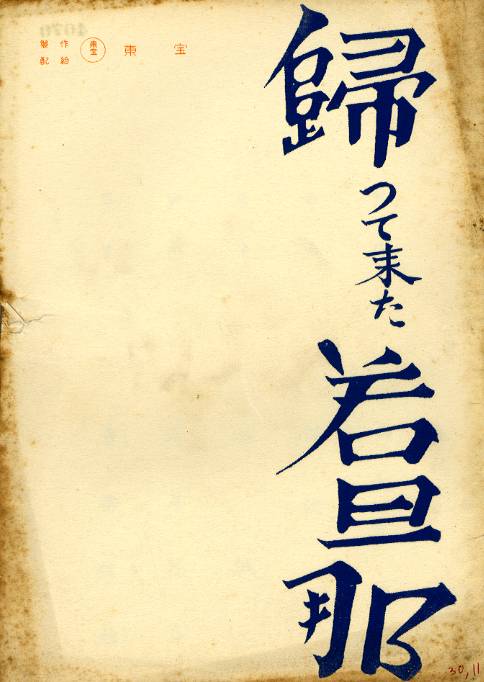 歸って来た若旦那
製作
配給
東宝
東宝
30,11